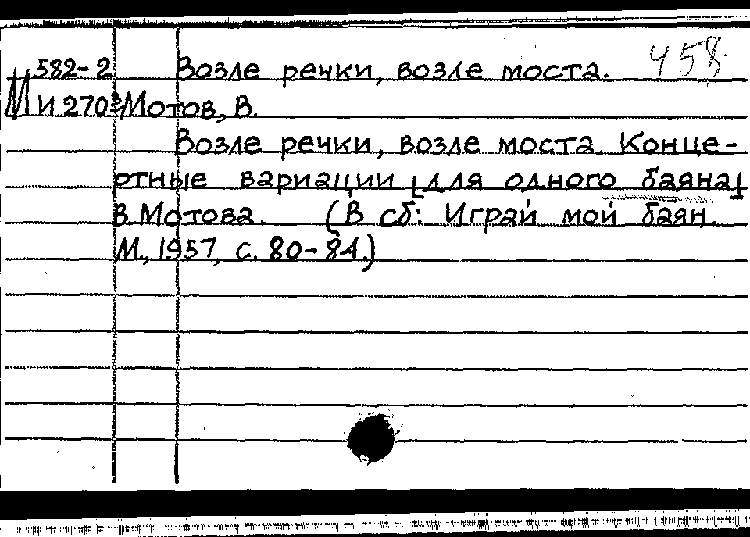 582-2 Возле речки, возле моста. 458
М И 270 Мотов, В.
Возле речки, возле моста. Конце-
ртные вариации [для одного баяна]
В. Мотова. (В сб: Играй мой баян.
М., 1957, с. 80-84.)